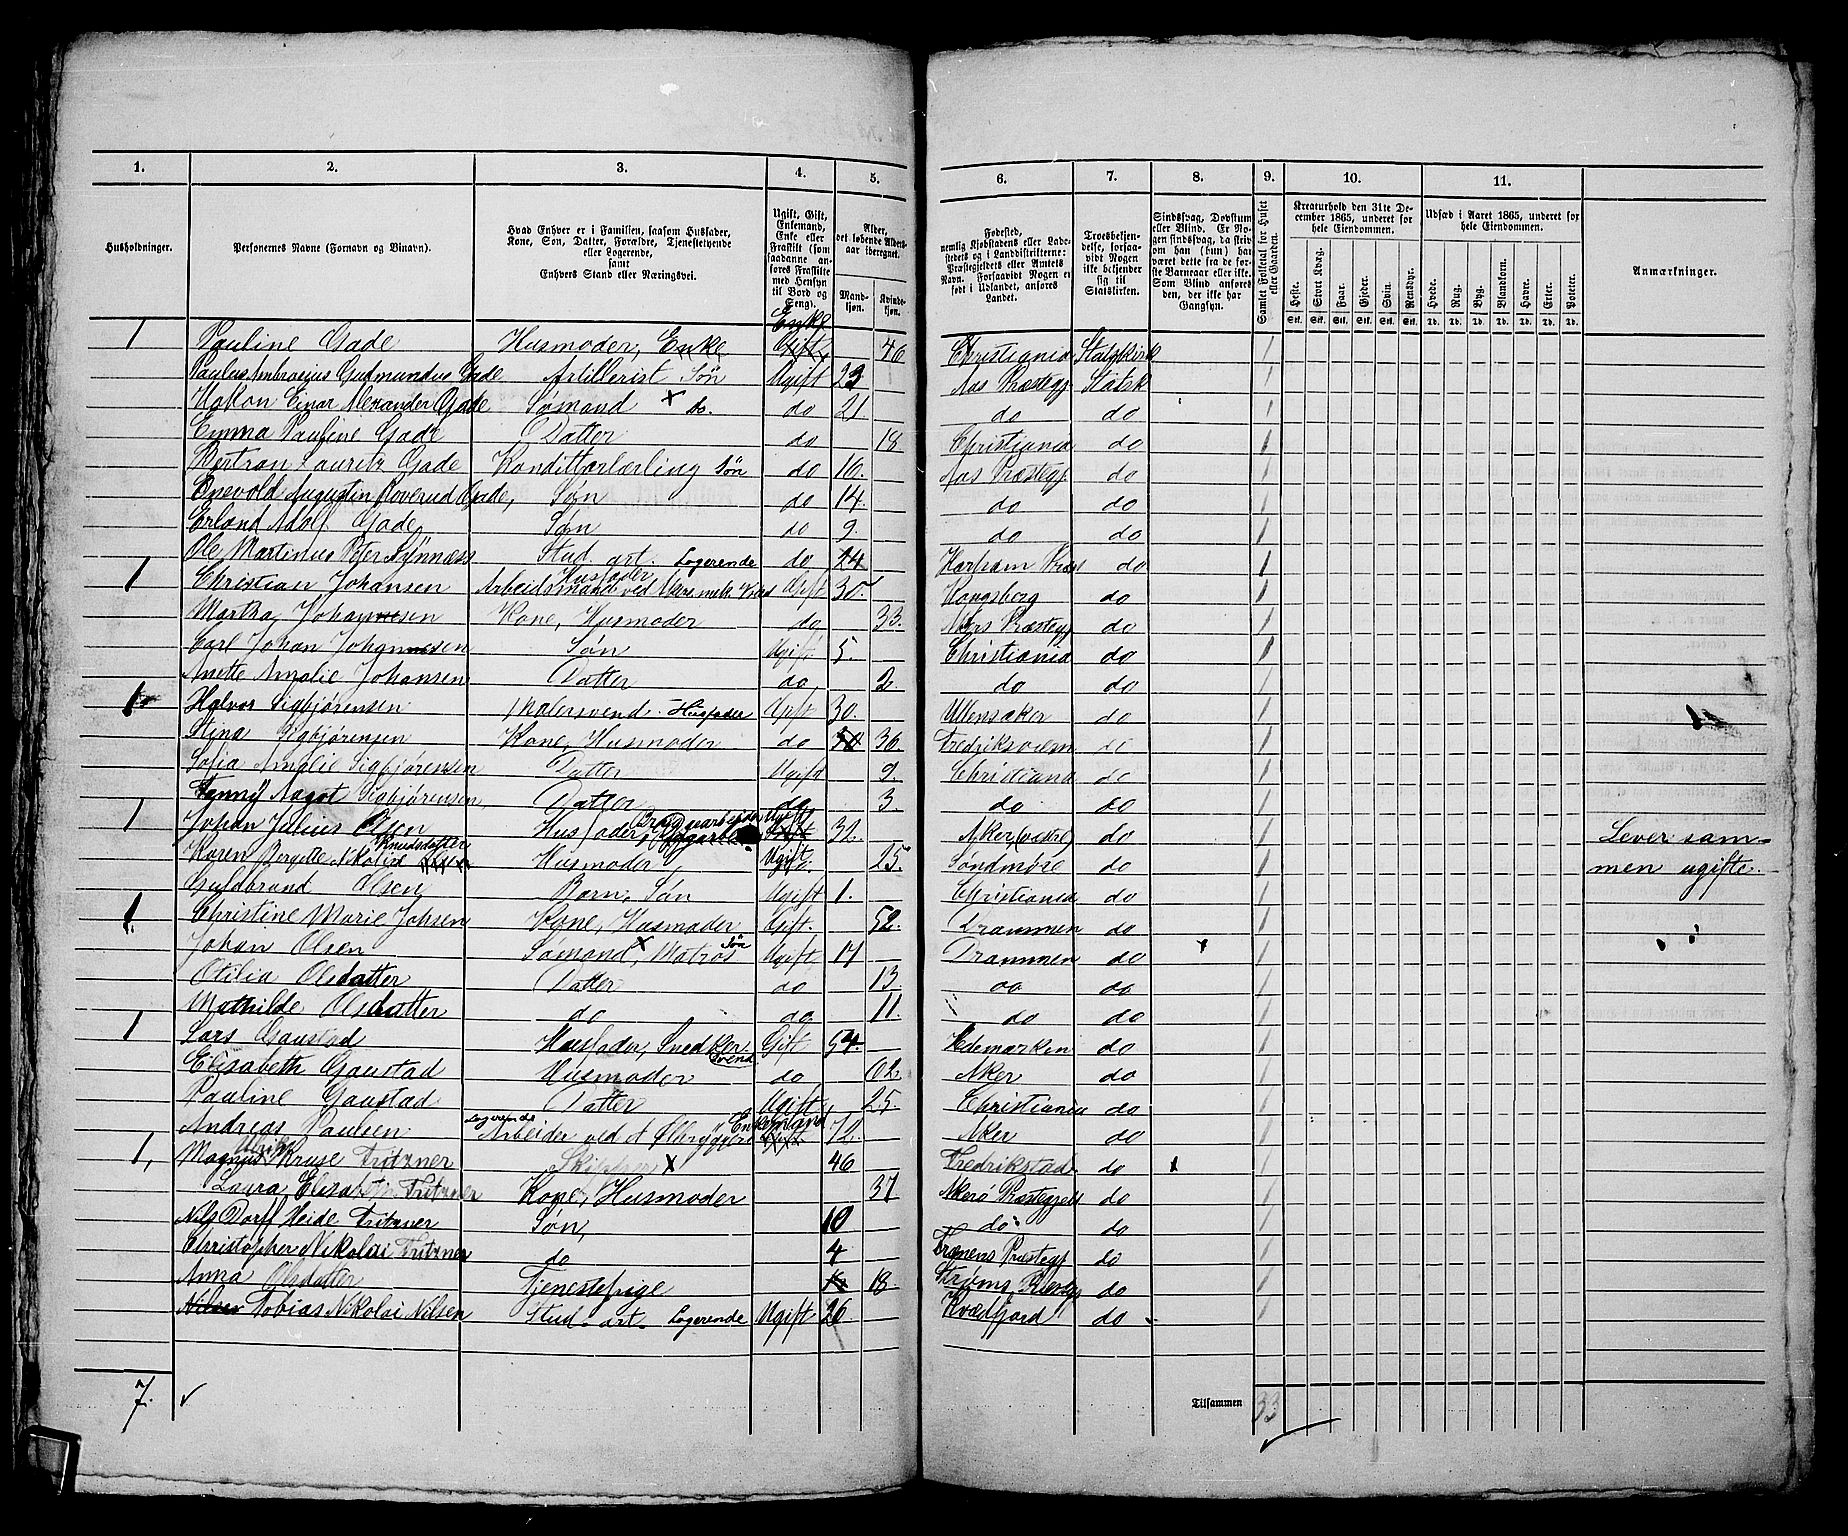 1. 2. 3. 4. 5. 6. 7. 8. 9. 10. 11.
Husholdninger.
Personernes Navne (Fornavn og Binavn).
Hvad Enhver er i Familien, saasom Husfader, Kone, Søn, Datter, Forældre, Tjenestetyende eller Logerende, samt Enhvers Stand eller Næringsvei.
Ugift, Gift, Enkemand, Enke eller Fraskilt (som saadanne anføres Fraskilte med Hensyn til Bord og Seng).
Alder, det løbende Aldersaar iberegnet.
Mandkjøn. Kvindekjøn.
Fødested, nemlig Kjøbstadens eller Ladestedets og i Landdistrikterne: Præstegjeldets eller Amtets Navn. Forsaavidt Nogen er født i Udlandet, anføres Landet.
Troesbekjendelse, forsaavidt Nogen ikke bekjender sig til Statskirken.
Sindssvag, Døvstum eller Blind. Er Nogen sindssvag, da skriv om han (hun) har været dette fra de første Barneaar eller ikke. Som Blind anføres den, der ikke har Gangsyn.
Samlet Folketal for Huset eller Gaarden.
Kreaturhold den 31te December 1865, underet for hele Eiendommen.
Heste. Stort Kvæg. Faar. Gjeder. Svin. Rensdyr.
Udsæd i Aaret 1865, underet for hele Eiendommen.
Hvede. Rug. Byg. Blandkorn. Havre. Erter. Poteter.
Stk. Stk. Stk. Stk. Stk. Stk. Td. Td. Td. Td. Td. Td. Td.
Anmærkninger.
1 Pauline Gade Husmoder, Enke Enke Gift, 46 Christiania Statskirk 1
Paulus Ambrosius Gudmundus Gade Artillerist Søn Ugift 23 Aas Præstegj Statsk 1
Hakon Einar Alexander Gade Sømand X do. do 21 do do 1
Emma Pauline Gade Datter do 18 Christiania do 1
Bertran Lauritz Gade Konditterlærling Søn do 16. Aas Præstegj. do 1
Enevold Augustin Roverud Gade, Søn do 14. do do 1
Erland Adolf Gade, Søn do 9. do do 1
Ole Martinus Peter Synnæss Stud. art. Logerende do 24 Harham Præst do 1
1 Christian Johansen Husfader Arbeidsmand ved Mekanik Værd Gift 30. Kongsberg do 1
Martha Johannesen Kone, Husmoder do 33. Næs Præstegj do 1
Carl Johan Johannesen Søn Ugift 5. Christiania do 1
Anette Amalie Johansen Datter do, 2. do do 1
1 Halvor Sigbjørensen Malersvend. Husfader Gift 30. Ullensaker do 1
Stina Sigbjørensen Kone, Husmoder do 36. Fredriksværn do 1
Sofia Amalie Sigbjørensen Datter Ugift 9 Christiania do 1
Fanny Nagot Sigbjørensen Datter do 3. do do 1
1 Johan Julius Olsen Husfader, Brygg­arbeider Ugift Gift 32. Aker (vestre) do 1 Lever sam-
Karen Bergitte Nikolise Knudsdatter Husmoder Ugift. 25. Søndmøre do 1 men ugifte.
Guldbrand Olsen Barn, Søn Ugift 1. Christiania do 1
1. Christine Marie Johsen Kone, Husmoder Gift. 52. Drammen do 1
Johan Olsen Sømand X, Matros Søn Ugift 17 Drammen do 1
Otilia Olsdatter Datter do 13. do do 1
Mathilde Olsdatter do do 11. do do 1
1 Lars Gaustad Husfader, Snedker svend Gift 54. Hedemarken do 1
Elisabeth Gaustad Husmoder do 62. Aker do 1
Pauline Gaustad Datter Ugift 25. Christiania do 1
Andreas Paulsen Logerende Arbeider ved et Ølbryggeri Enkemand Gift. 72. Aker do 1
1, Magnus Ulrik Kruse Fritzner Skipper X 46 Fredrikstad do 1
Laura Elisabeth Fritzner Kone, Husmoder 37 Akerø Præstegjeld do 1
Nils Dorff Heide Fritzner Søn, 10 do. do 1
Christopher Nikolai Fritzner do 4 Tranens Præstegj do 1
Anna Olsdatter Tjenestepige 18. Strøms Præstegj do 1
Nilsen Tobias Nikolai Nilsen Stud. art. Logerende Ugift 26 Kvæfjord do 1
7. ✓ Tilsammen 33 ✓